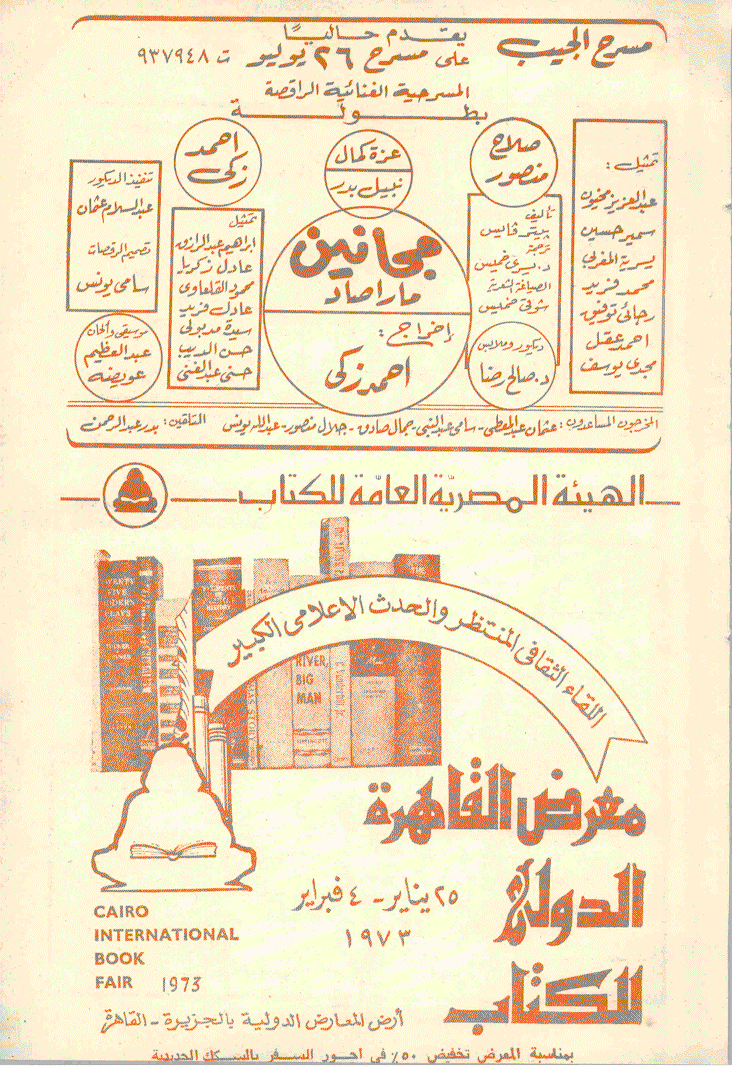 مسرح الجيب
يقدم حاليًا
على مسرح ٢٦ يوليو ت ٩٣٧٩٤٨
المسرحية الغنائية الراقصة
بطولة
صلاح منصور
عزة كمال
نبيل بدر
احمد زكى
مجانين
ماراصاد
إخراج :
احمد زكى
تمثيل :
عبدالعزيز مخيون
سمير حسين
يسرية المغربي
محمد فريد
رجائى توفيق
احمد عقل
مجدى يوسف
تأليف
بيتر فايس
ترجمة
د. يسرى خميس
الصياغة الشعرية
شوقى خميس
ديكور وملابس
د. صالح رضا
تمثيل
ابراهيم عبدالرازق
عادل زكريا
محمود القلعاوى
عادل فريد
سيدة مدبولى
حسن الديب
حسنى عبدالغنى
تنفيذ الديكور
عبدالسلام عثمان
تصميم الرقصات
سامى يونس
موسيقى وألحان
عبدالعظيم
عويضه
المخرجون المساعدون : عثمان عبدالمعطى - سامى عبدالنبى - جمال صادق - جلال منصور - عبدالله يونس التلقين : بدر عبدالرحمن
الهيئة المصرية العامة للكتاب
اللقاء الثقافى المنتظر والحدث الاعلامى الكبير
RIVER,
BIG
MAN
معرض القاهرة
الدولى
للكتاب
٢٥ يناير - ٤ فبراير
١٩٧٣
CAIRO
INTERNATIONAL
BOOK
FAIR 1973
أرض المعارض الدولية بالجزيرة - القاهرة
بمناسبة المعرض تخفيض ٥٠٪ فى اجور السفر بالسكك الحديدية